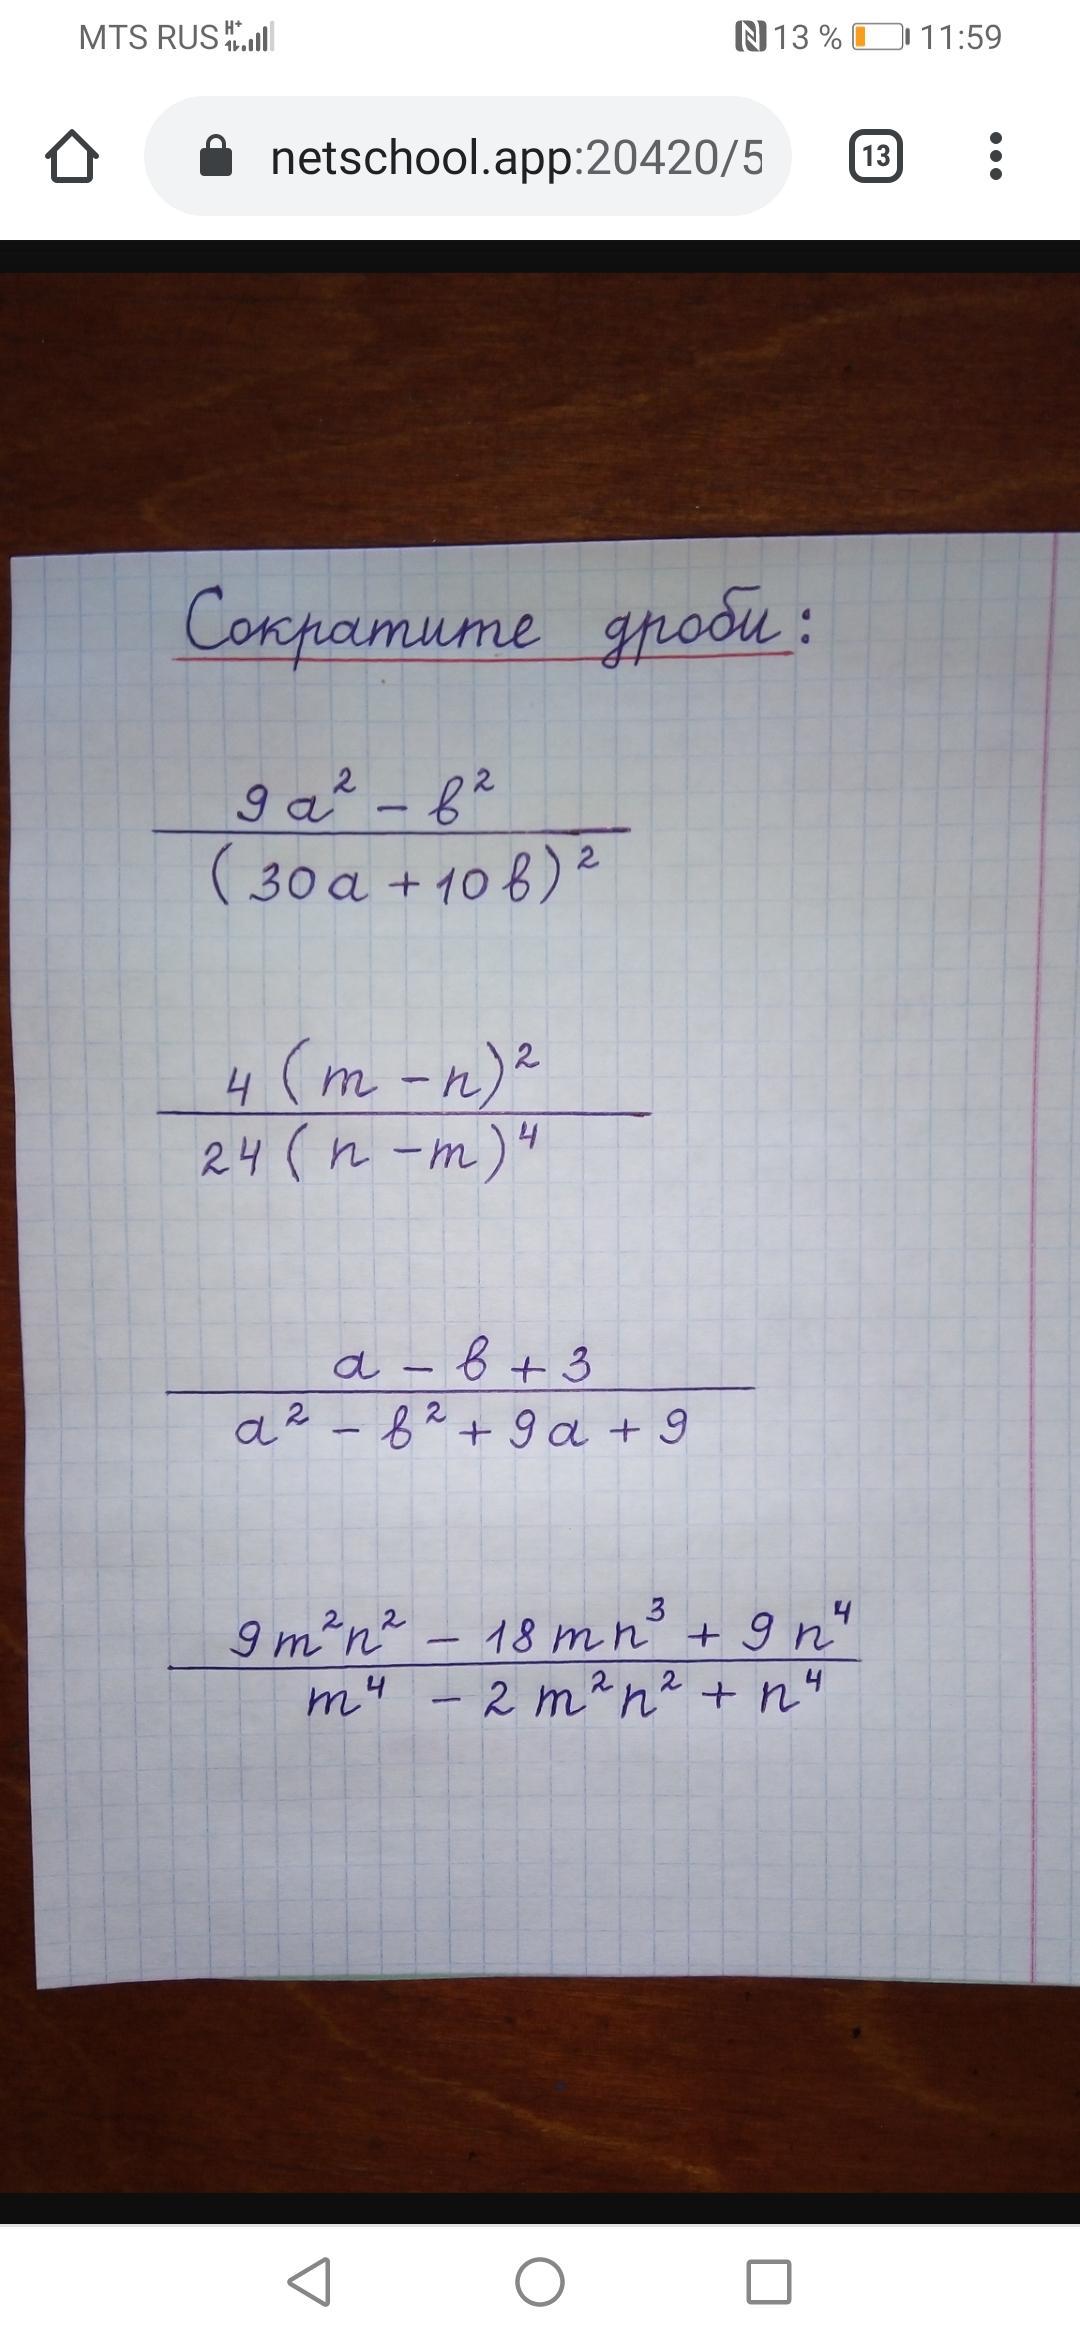 MTS RUS H+ 13 % 11:59
netschool.app:20420/5 13
Сократите дроби:
9a² - в²
(30a + 10в)²
4(m - n)²
24(n - m)⁴
a - в + 3
a² - в² + 9a + 9
9m²n² - 18mn³ + 9n⁴
m⁴ - 2m²n² + n⁴